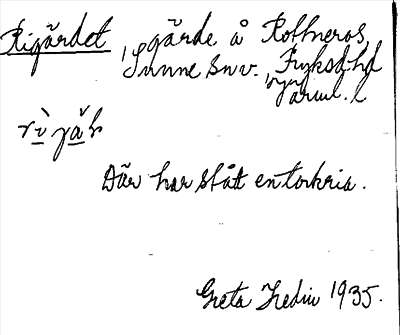 Rigärdet, gärde å Rottneros,
Sunne snv. Fryksd. hd
Värml. l
Där har stått en torkria.
Greta Hedin 1935.